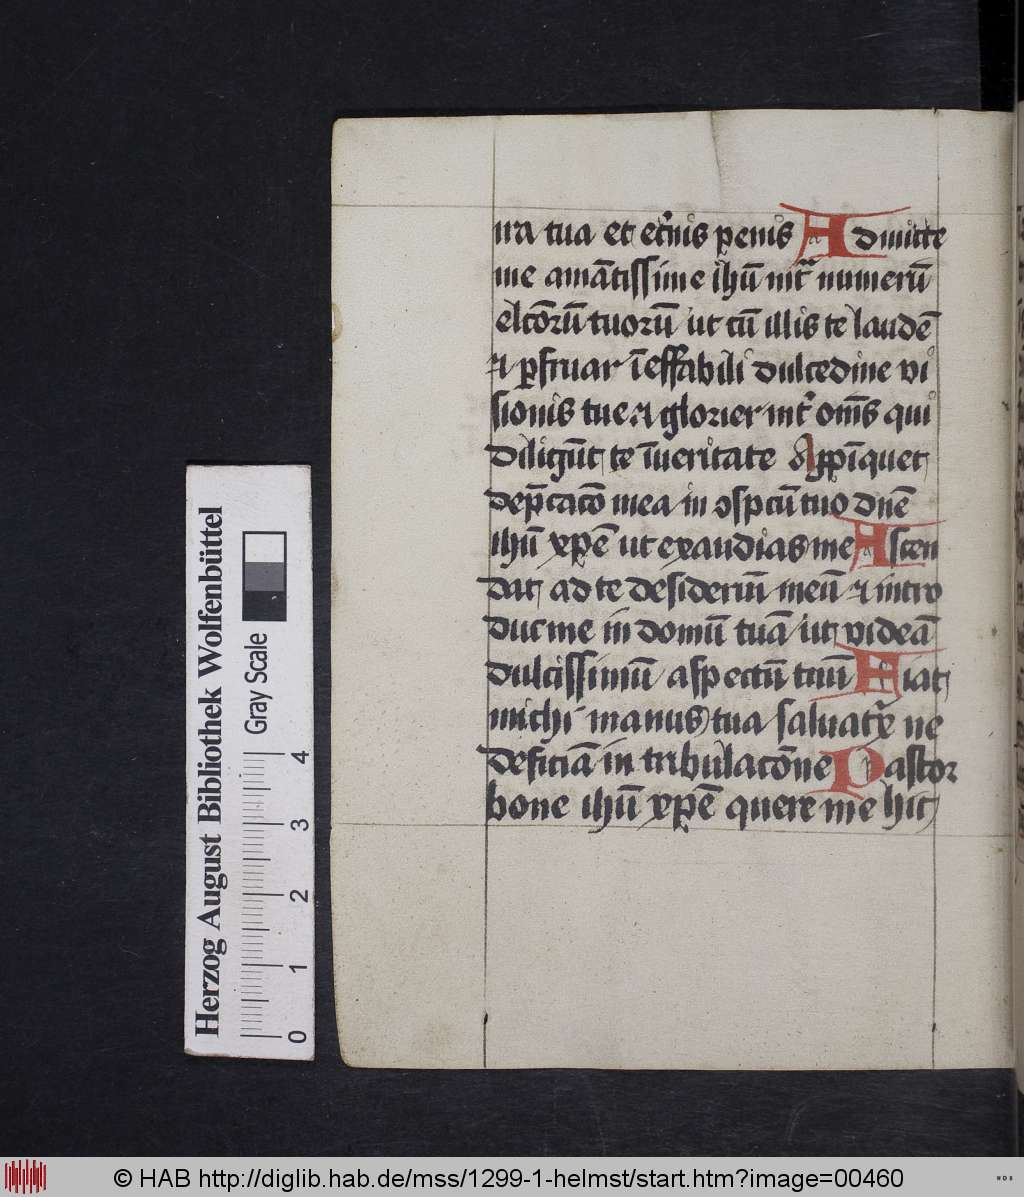 ira tua et et̾nis penis Admitte
me amātissime ihū int̾ numerū
elcōrū tuorū ut cū illis te laudē
⁊ ꝑfruar īeffabili dulcedine vi
sionis tue ⁊ glorier int̾ om̄s qui
diligūt te īueritate Appīquet
dep̄cacō mea in ↄspcū tuo dn̄e
ihū xp̄e ut exaudias me Ascen
dat ad te desideriū meū ⁊ intro
duc me in domū tuā ut videā
dulcissimū aspectū tuū Fiat
michi manus tua saluatͬx ne
deficiā in tribulacōne Pastor
bone ihū xp̄e quere me hic
Herzog August Bibliothek Wolfenbüttel
Gray Scale
0 1 2 3 4
© HAB http://diglib.hab.de/mss/1299-1-helmst/start.htm?image=00460